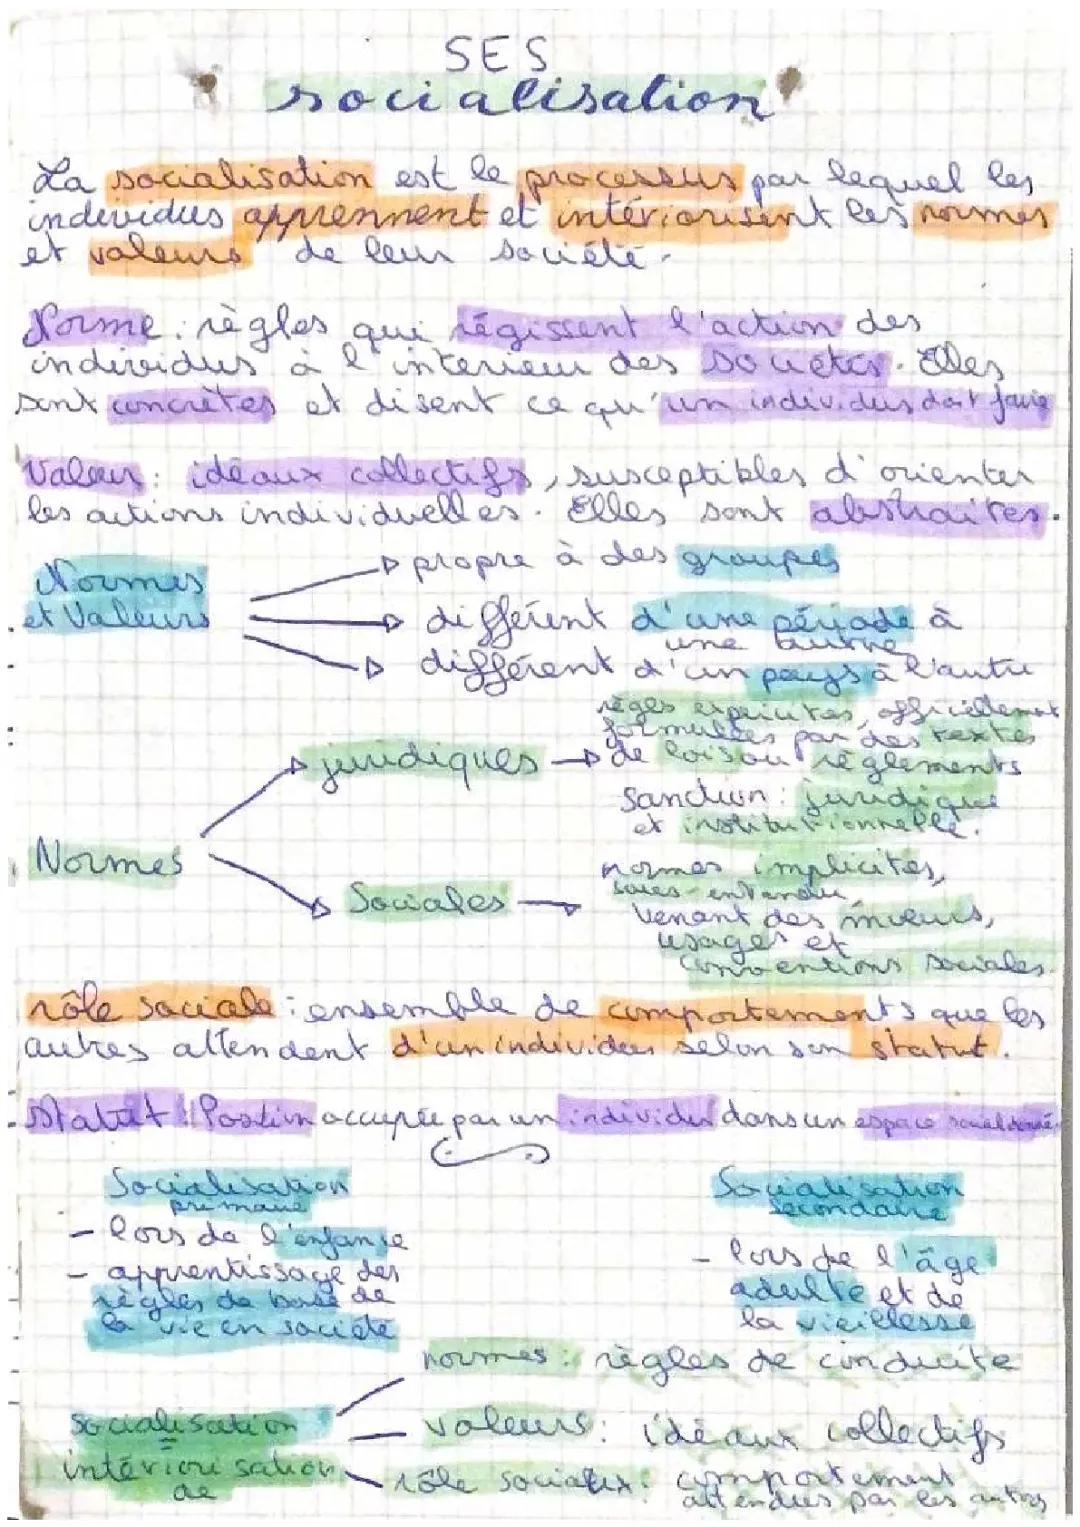 SES
socialisation
La socialisation est le processus par lequel les
individus apprennent et intériorisent les normes
et valeurs de leur société.
Norme : règles qui régissent l'action des
individus à l'interieur des sociétés. Elles
sont concrètes et disent ce qu'un individus doit faire
Valeur : idéaux collectifs, susceptibles d'orienter
les actions individuelles. Elles sont abstraites.
Normes
et Valeurs
propre à des groupes
différent d'une période à
une autre
différent d'un pays à l'autre
Normes
juridiques
règes explicites, officiellement
formulées par des textes
de lois ou règlements
Sanction : juridique
et institutionnelle.
Sociales
normes implicites,
sous-entendu,
venant des mœurs,
usages et
conventions sociales.
rôle sociale : ensemble de comportements que les
autres attendent d'un individu selon son statut.
Statut : Position occupée par un individu dans un espace social donné.
Socialisation
primaire
- lors de l'enfance
- apprentissage des
règles de base de
la vie en société
Socialisation
secondaire
- lors de l'âge
adulte et de
la vieillesse
socialisation
=
intériorisation
de
normes : règles de conduite
valeurs : idéaux collectifs
rôle sociaux : comportement
attendus par les autres